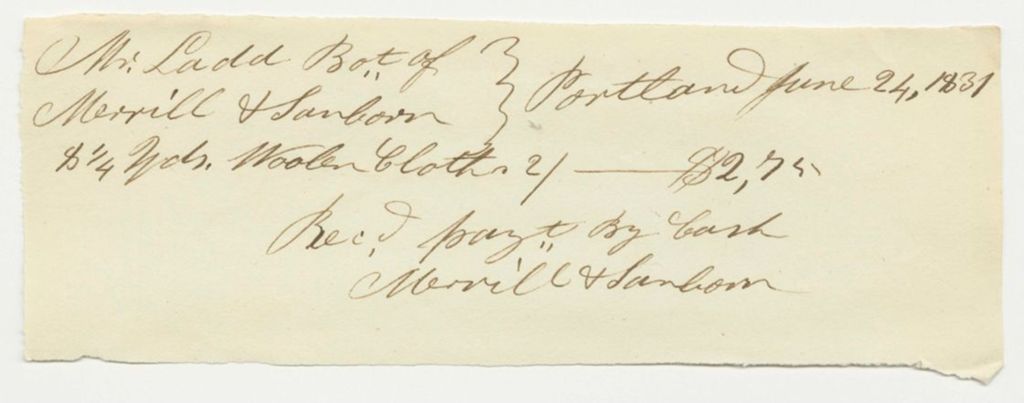 Mr. Ladd Bot. of
Merrill & Sanborn } Portland June 24, 1831
8 1/4 Yds. Woolen Cloth 2/ — $2,75
Rec.d payt. By Cash
Merrill & Sanborn